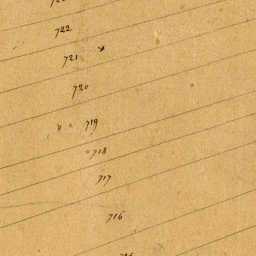 722
721
720
719
718
717
716